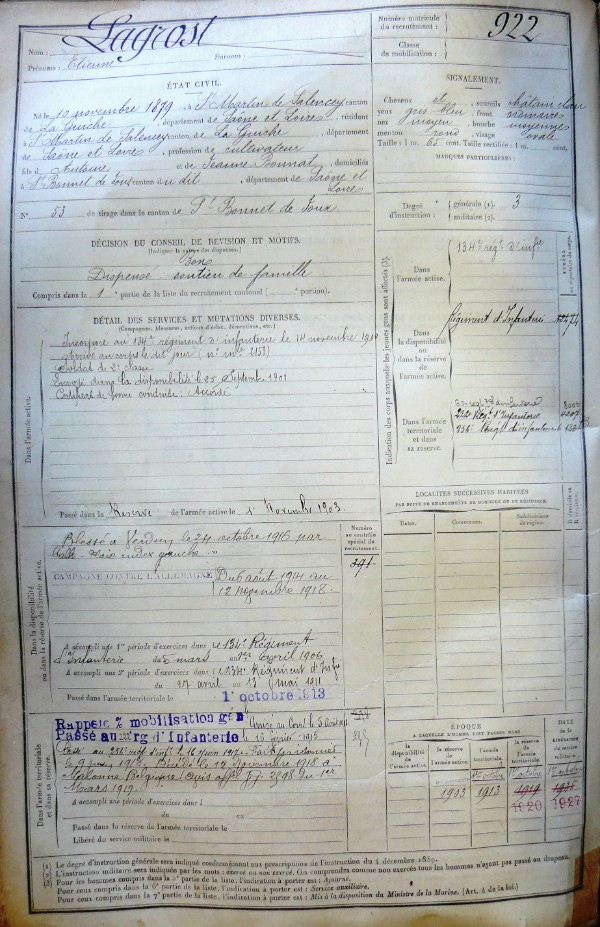 Nom : Lagrost
Prénoms : Etienne Surnom :
Numéro matricule du recrutement : 922
Classe de mobilisation :
ÉTAT CIVIL.
Né le 10 novembre 1879 à St Martin de Salencey canton
de La Guiche, département de Saône et Loire, résidant
à St Martin de Salencey canton de La Guiche, département
de Saône et Loire, profession de cultivateur
fils d'Antoine et de Jeanne Bonnat, domiciliés
à St Bonnet de Joux canton du dit, département de Saône et
Loire
N° 53 de tirage dans le canton de St Bonnet de Joux
SIGNALEMENT.
Cheveux et sourcils châtain clair
yeux gris bleu front
nez moyen bouche moyenne
menton rond visage ovale
Taille : 1 m. 65 cent. Taille rectifiée : 1 m. cent.
MARQUES PARTICULIÈRES :
Degré d'instruction : générale (1). 3
militaire (2).
DÉCISION DU CONSEIL DE REVISION ET MOTIFS.
Bon
Dispensé soutien de famille
Compris dans la 1e partie de la liste du recrutement cantonal ( portion).
DÉTAIL DES SERVICES ET MUTATIONS DIVERSES.
(Campagnes, blessures, actions d'éclat, décorations, etc.)
Dans l'armée active.
Incorporé au 134e régiment d'infanterie le 14 novembre
Arrivé au corps le dit jour
Soldat de 2e classe
Envoyé dans la disponibilité le 25 Septembre 1901
Certificat de bonne conduite : Accordé
Passé dans la Réserve de l'armée active le 1er Novembre 1903.
Indication des corps auxquels les jeunes gens sont affectés (3).
Dans l'armée active.
134e régt d'infie
Dans la disponibilité ou dans la réserve de l'armée active.
Régiment d'Infanterie
Dans l'armée territoriale et dans sa réserve.
Régt d'Infanterie
Régt d'infanterie
LOCALITÉS SUCCESSIVES HABITÉES
PAR SUITE DE CHANGEMENTS DE DOMICILE OU DE RÉSIDENCE.
Dates. Communes. Subdivisions de région.
Dans la disponibilité ou dans la réserve de l'armée active.
Numéro au contrôle spécial du recrutement.
391
Blessé à Verdun le 24 octobre 1916 par
balle. Plaie index gauche
CAMPAGNE CONTRE L'ALLEMAGNE Du 6 août 1914 au
12 novembre 1918.
A accompli une 1re période d'exercices dans le 134e Régiment
d'Infanterie du 5 mars au Avril 1906
A accompli une 2e période d'exercices dans le 134e Régiment d'Infie
du 27 avril au 13 mai 1911
Passé dans l'armée territoriale le 1er octobre 1913
Dans l'armée territoriale et dans sa réserve.
Rappelé % mobilisation gén
Passé au rg d'Infanterie le 16 février 1915
Passé au régt d'infie le 16 juin 1917. Fait prisonnier
le 9 juin 1918. le 12 Novembre 1918 à
Belgique
Mars 1919.
A accompli une période d'exercices dans l
du au
Passé dans la réserve de l'armée territoriale le
Libéré du service militaire le
ÉPOQUE
À LAQUELLE L'HOMME DOIT PASSER DANS
la disponibilité de l'armée active.
la réserve de l'armée active.
l'armée territoriale.
la réserve de l'armée territoriale.
DATE DE LA libération du service militaire.
1er octobre
1903 1913 1919 1920 1927
(1) Le degré d'instruction générale sera indiqué conformément aux prescriptions de l'instruction du 4 décembre 1889.
(2) L'instruction militaire sera indiquée par les mots : exercé ou non exercé. On comprendra comme non exercés tous les hommes n'ayant pas passé au drapeau.
(3) Pour les hommes compris dans la 5e partie de la liste, l'indication à porter est : Ajourné.
Pour ceux compris dans la 6e partie de la liste, l'indication à porter est : Service auxiliaire.
Pour ceux compris dans la 7e partie de la liste, l'indication à porter est : Mis à la disposition du Ministre de la Marine. (Art. 4 de la loi.)